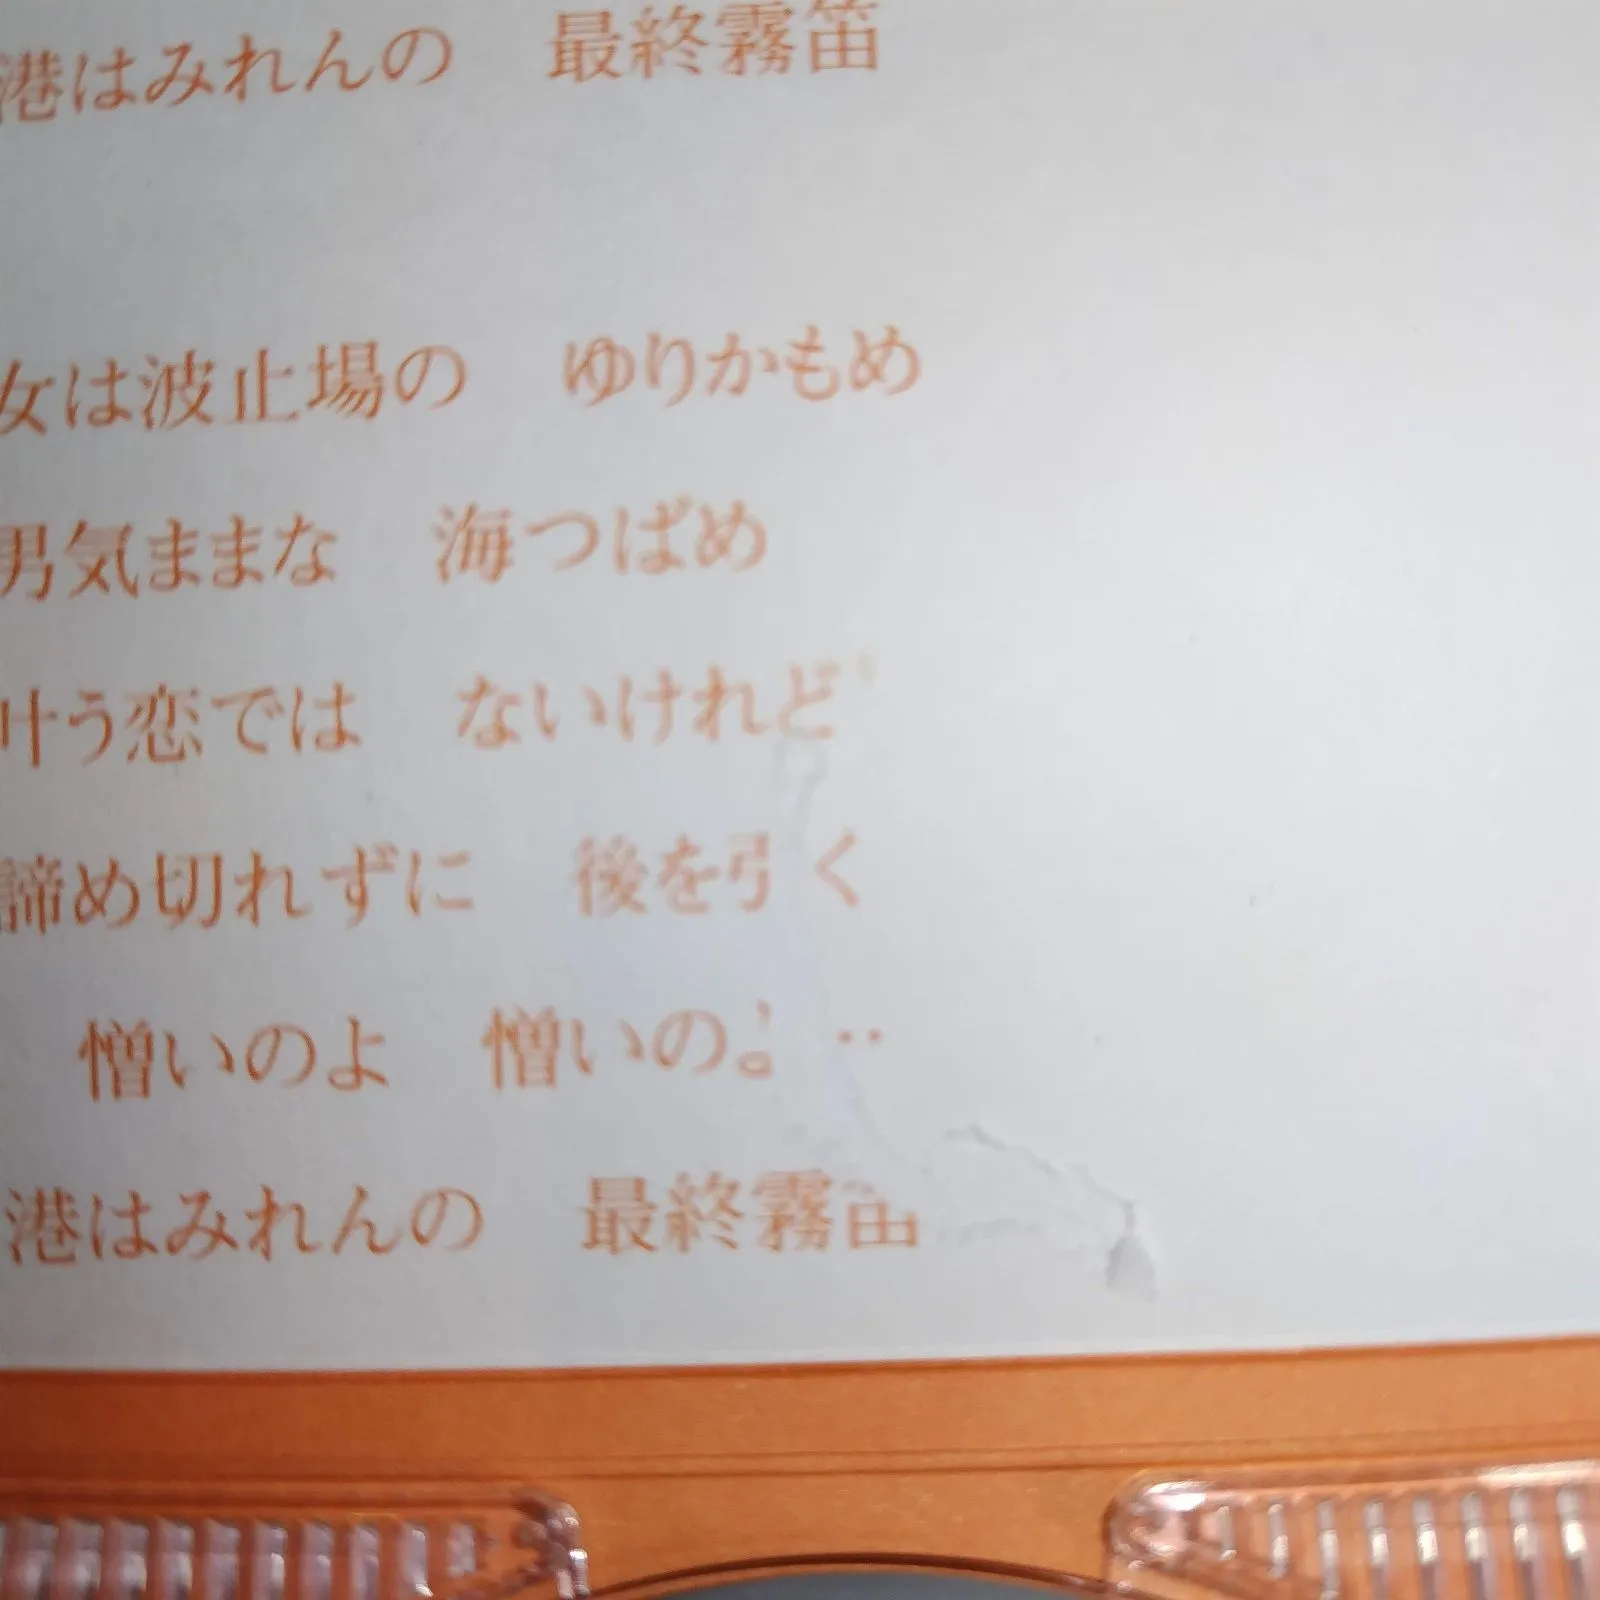 港はみれんの　最終霧笛
女は波止場の　ゆりかもめ
男気ままな　海つばめ
叶う恋では　ないけれど
諦め切れずに　後を引く
憎いのよ　憎いのよ‥
港はみれんの　最終霧笛